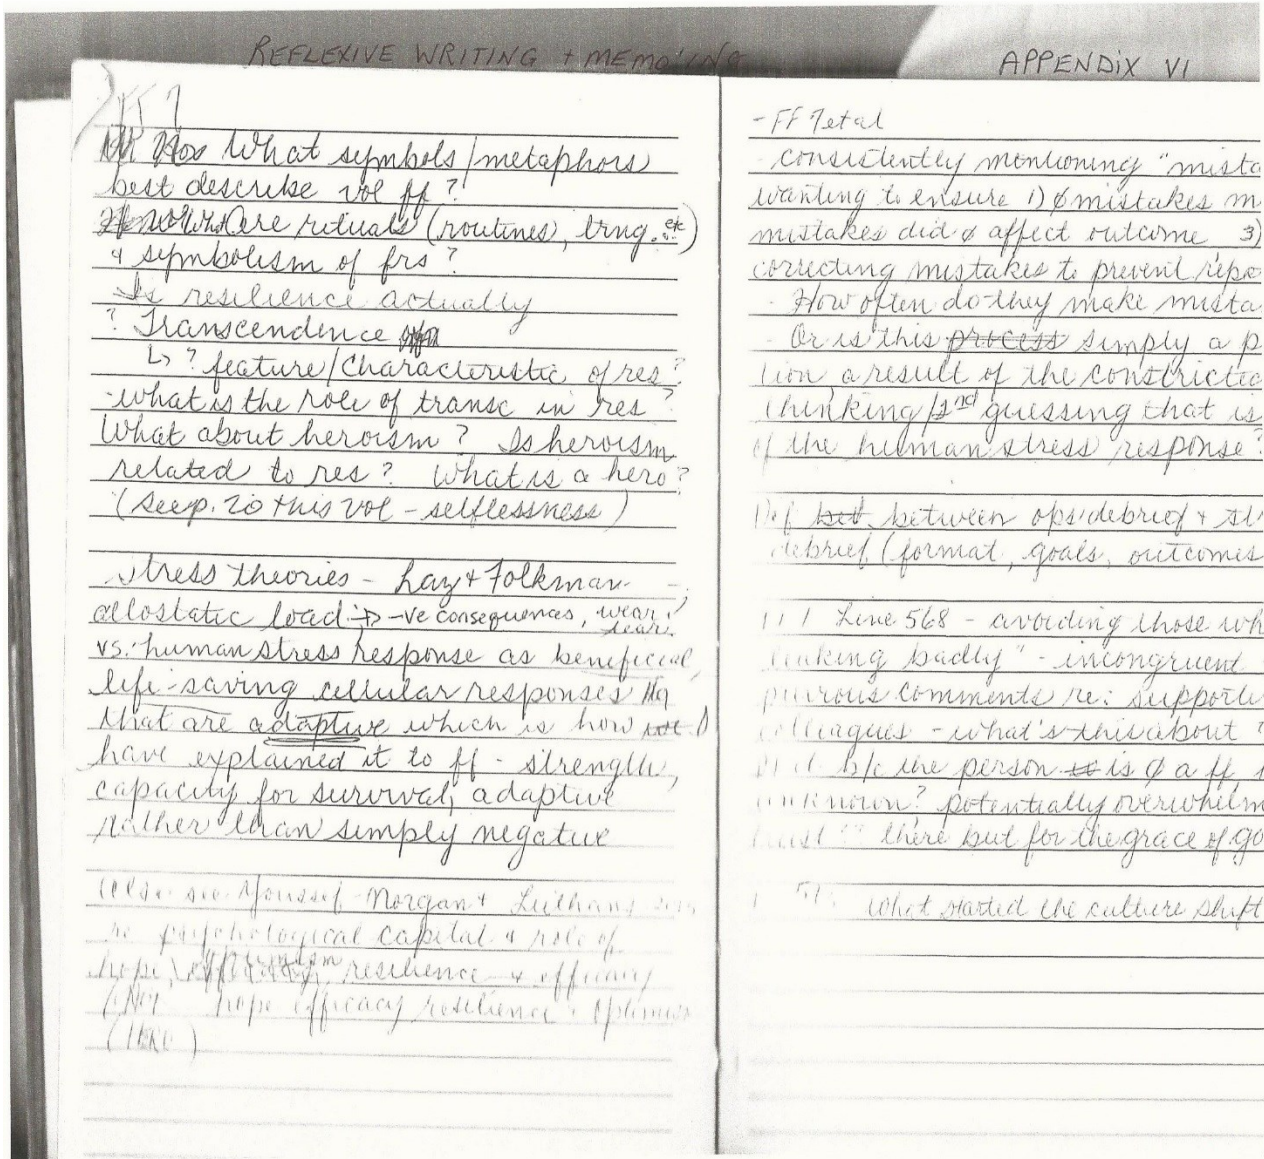 REFLEXIVE WRITING + MEMOING
APPENDIX VI
What symbols/metaphors
best describe vol ff?
What are rituals (routines), trng. etc)
& symbolism of frs?
Is resilience actually
? Transcendence
↳ ? feature/characteristic of res?
-what is the role of transc in res?
What about heroism? Is heroism
related to res? What is a hero?
(see p. 20 this vol - selflessness)
stress theories - Laz + Folkman -
allostatic load → -ve consequences, wear, tear
vs. human stress response as beneficial,
life-saving cellular responses
that are adaptive which is how I
have explained it to ff - strength,
capacity for survival, adaptive
rather than simply negative
also see Youssef-Morgan + Luthans 2015
re psychological capital & role of
hope, optimism, resilience & efficacy
hope efficacy resilience & optimism
(HERO)
- FF 7 et al
- consistently mentioning "mista
wanting to ensure 1) ∅ mistakes m
mistakes did ∅ affect outcome 3)
correcting mistakes to prevent repe
- How often do they make mista
- Or is this process simply a p
tion, a result of the constricted
thinking/2nd guessing that is
of the human stress response?
Dif bet. between ops debrief + st
debrief (format, goals, outcomes
Line 568 - avoiding those wh
badly" - incongruent
comments re: supporti
colleagues - what's this about?
b/c the person is ∅ a ff
unknown? potentially overwhelm
there but for the grace of go
What started the culture shift